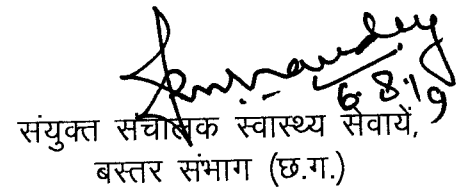 6.8.19
संयुक्त संचालक स्वास्थ्य सेवायें,
बस्तर संभाग (छ.ग.)